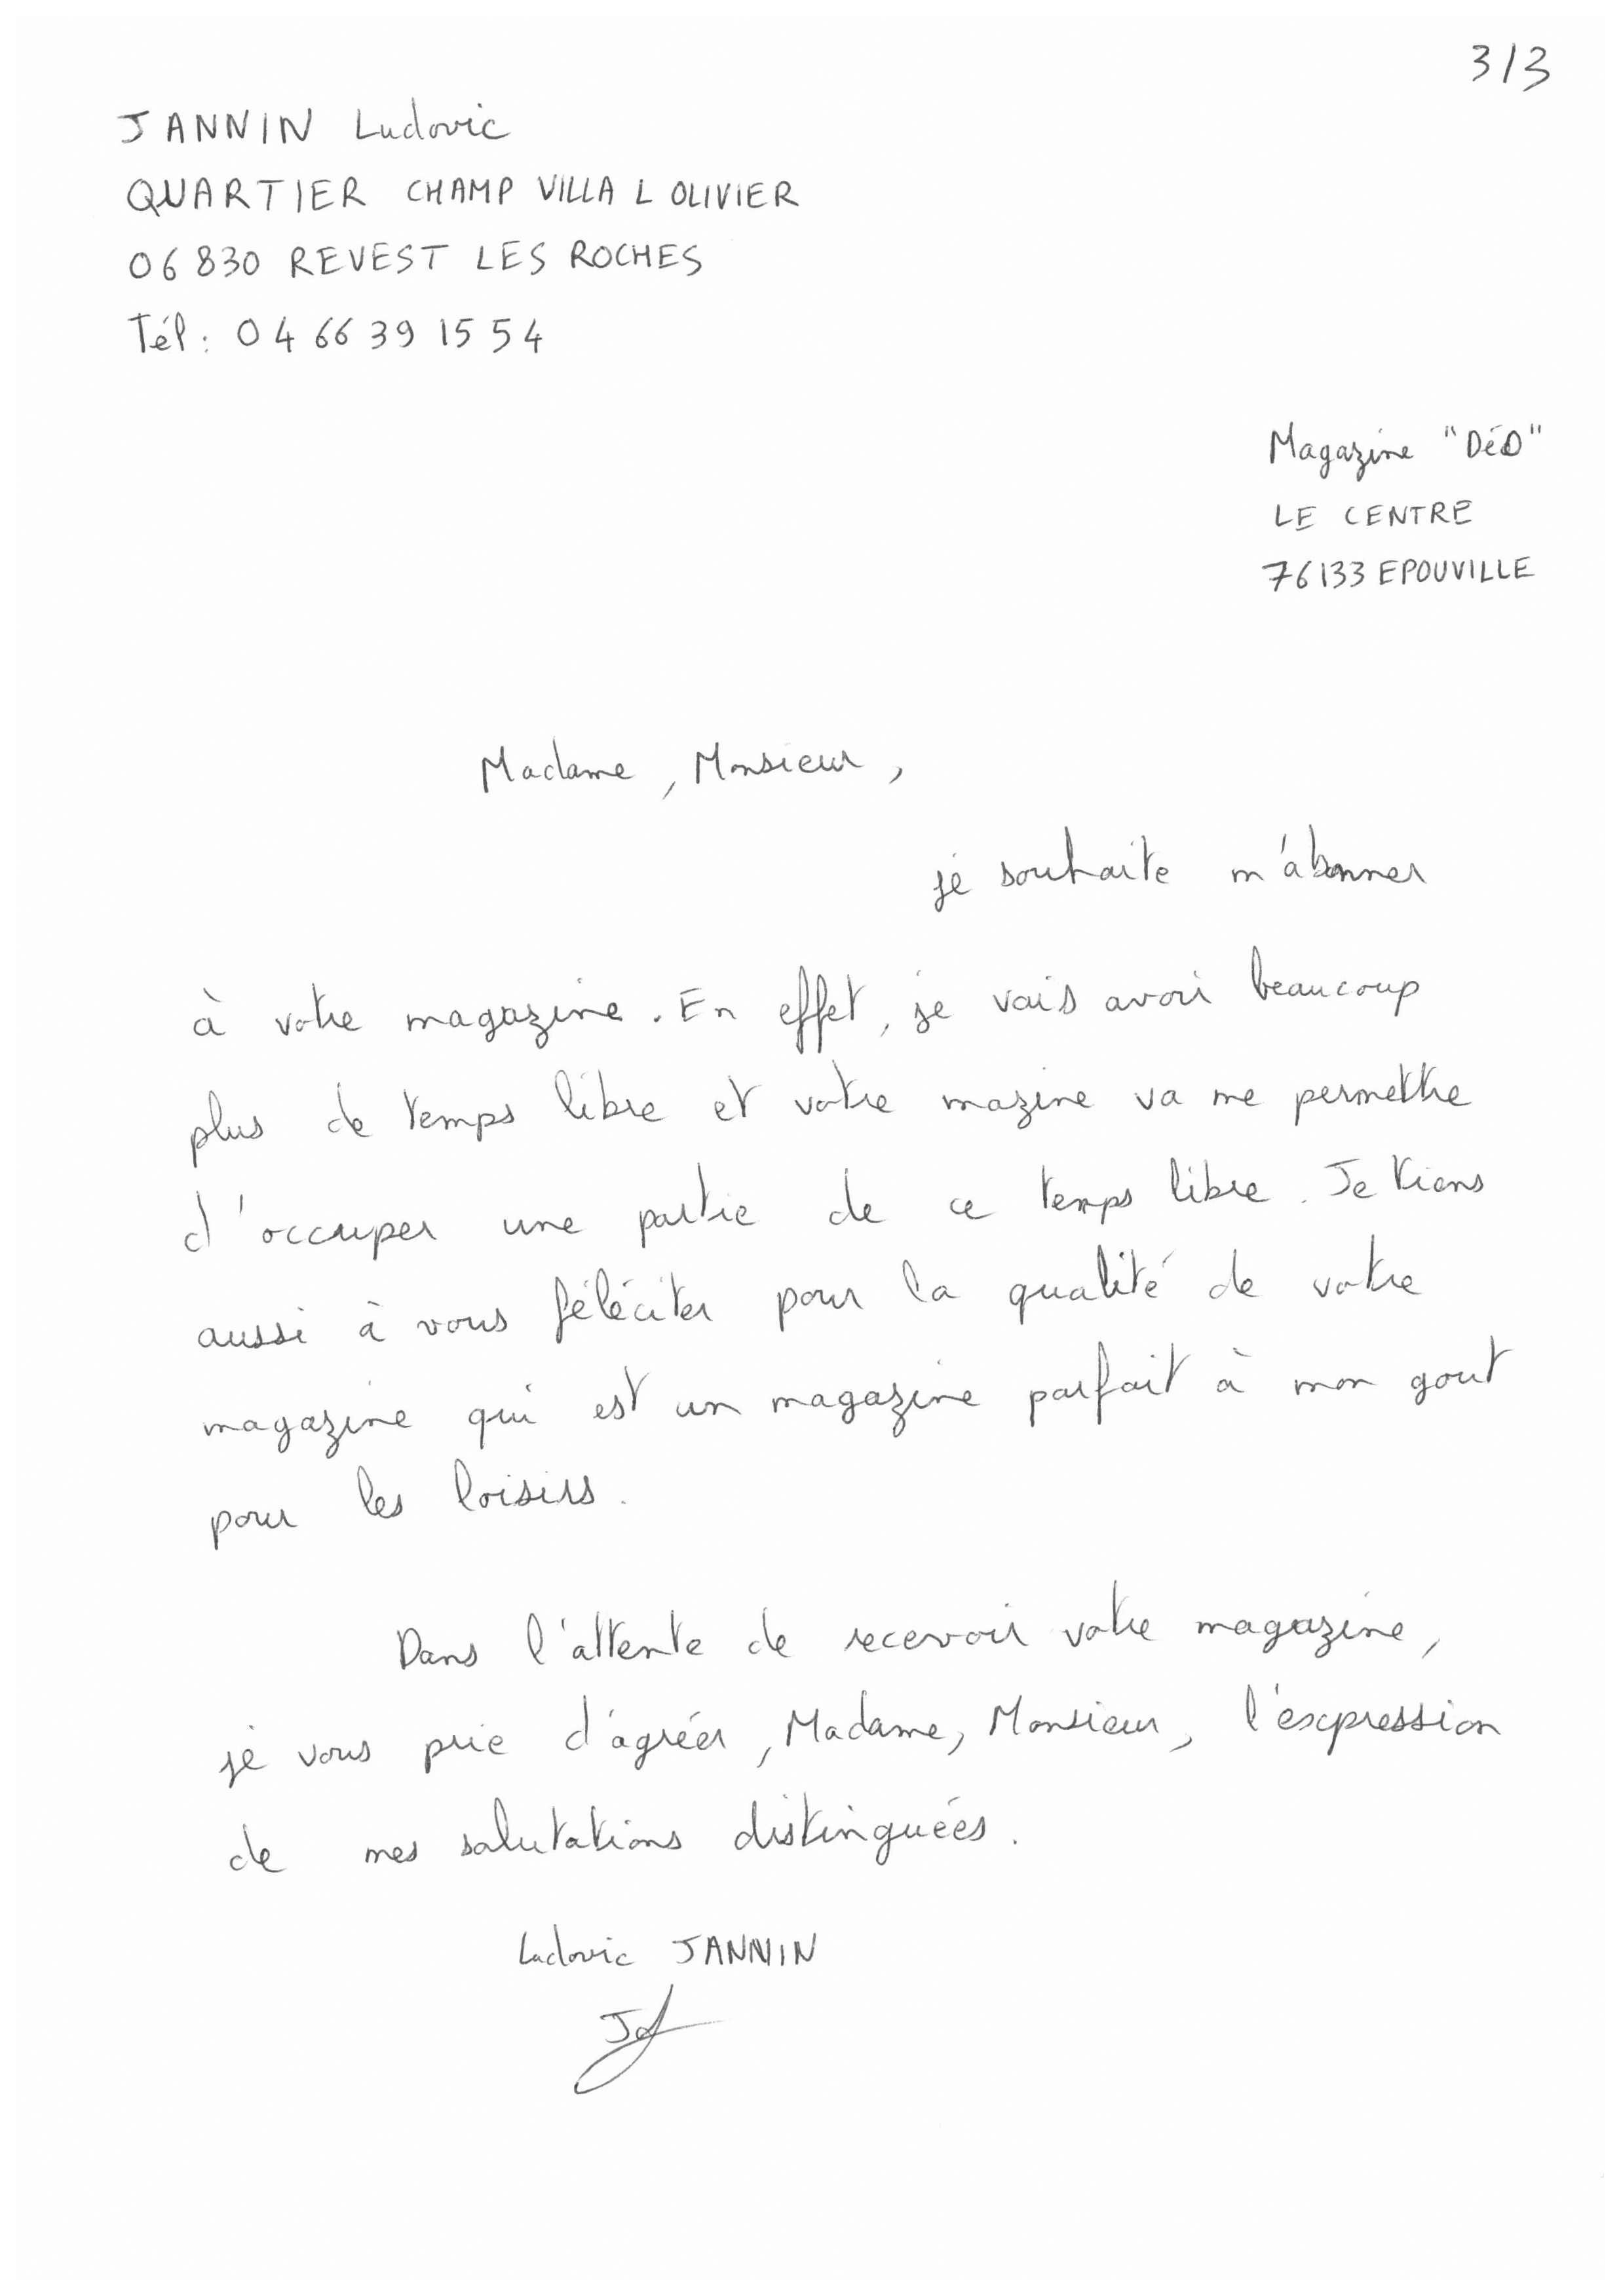 3/3
JANNIN Ludovic
QUARTIER CHAMP VILLA L OLIVIER
06 830 REVEST LES ROCHES
Tél : 04 66 39 15 54
Magazine "DéD"
LE CENTRE
76133 EPOUVILLE
Madame, Monsieur,
je souhaite m'abonner
à votre magazine. En effet, je vais avoir beaucoup
plus de temps libre et votre mazine va me permettre
d'occuper une partie de ce temps libre. Je tiens
aussi à vous féléciter pour la qualité de votre
magazine qui est un magazine parfait à mon gout
pour les loisirs.
Dans l'attente de recevoir votre magazine,
je vous prie d'agréer, Madame, Monsieur, l'expression
de mes salutations distinguées.
Ludovic JANNIN